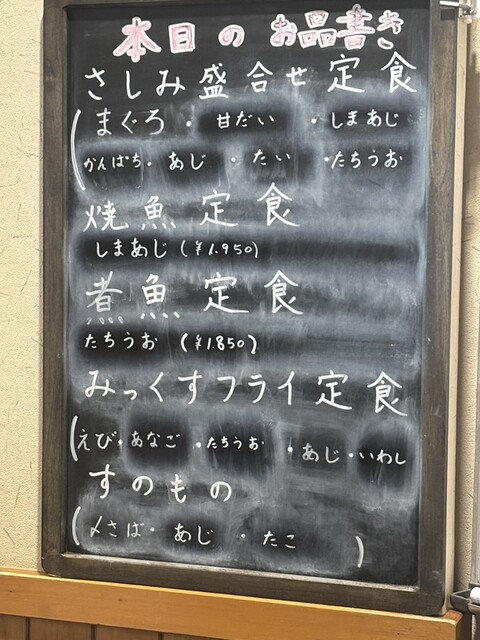 本日の お品書き
さしみ盛合せ定食
(まぐろ・甘だい・しまあじ
かんぱち・あじ・たい・たちうお
焼魚定食
しまあじ (¥1.950)
煮魚定食
たちうお (¥1.850)
みっくすフライ定食
(えび・あなご・たちうお・あじ・いわし
すのもの
(〆さば・あじ・たこ)